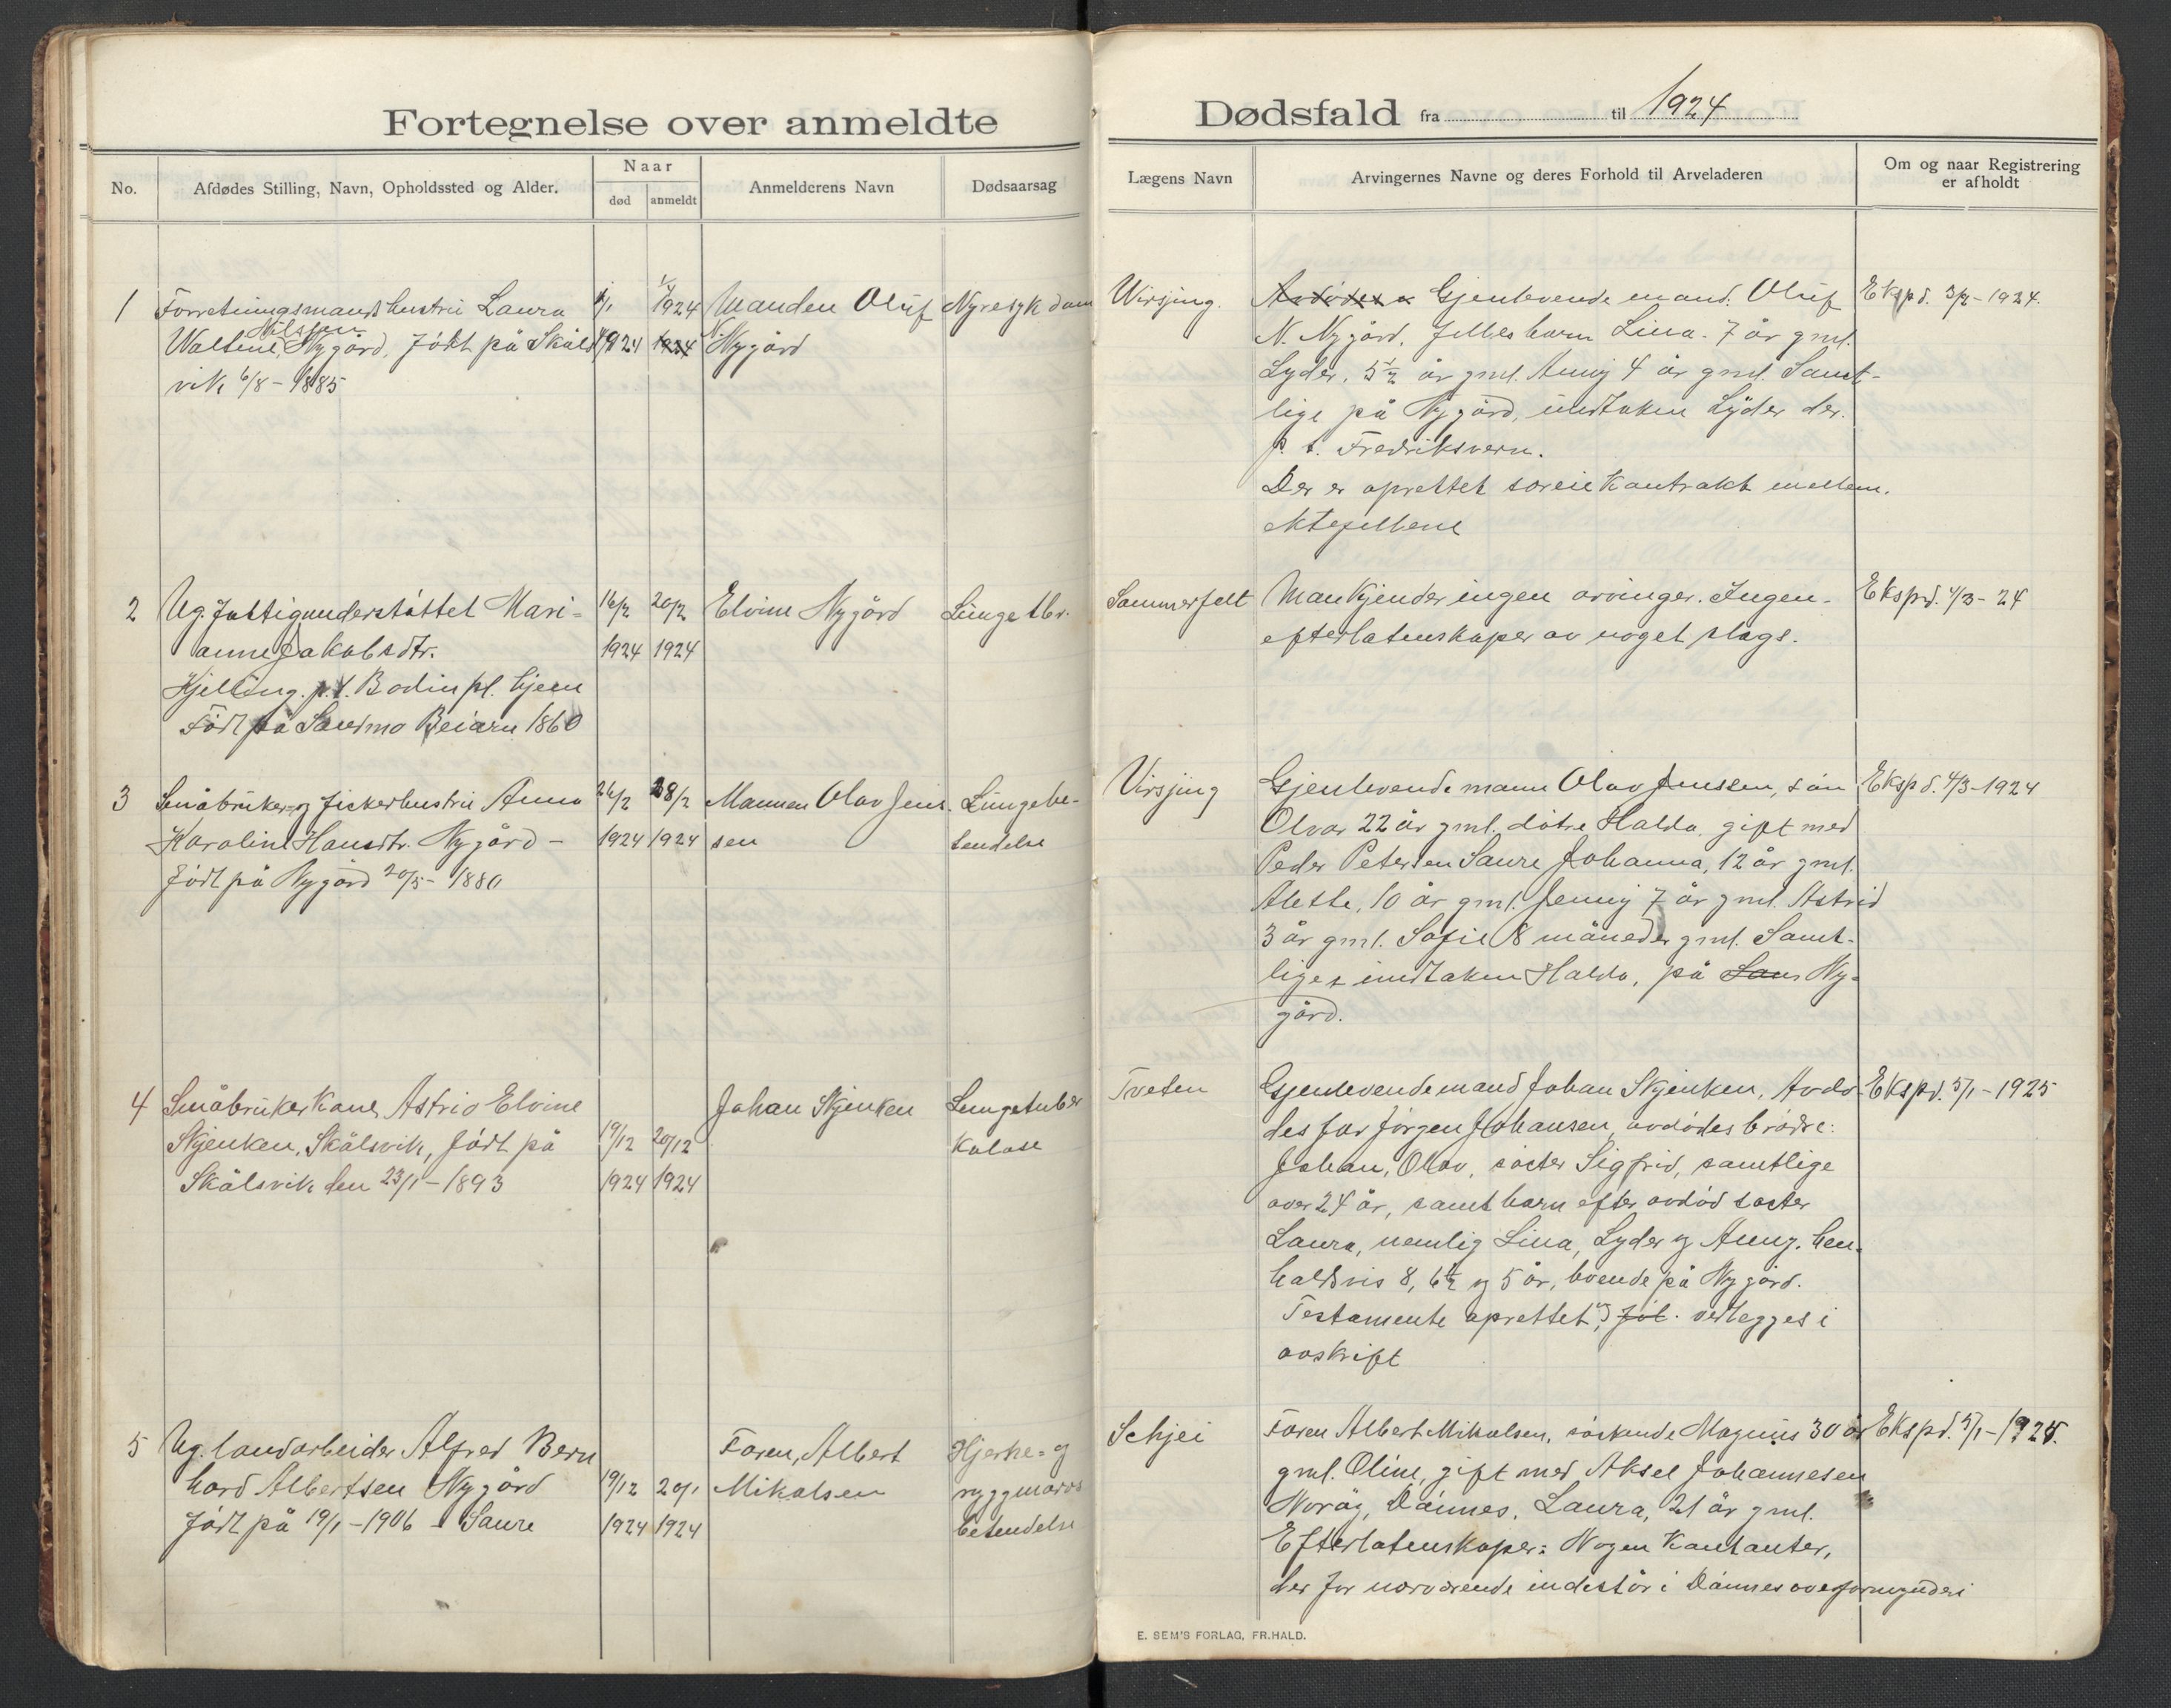 Fortegnelse over anmeldte
Dødsfald fra til 1924
No.
Afdødes Stilling, Navn, Opholdssted og Alder.
Naar
død
anmeldt
Anmelderens Navn
Dødsaarsag
Lægens Navn
Arvingernes Navne og deres Forhold til Arveladeren
Om og naar Registrering
er afholdt
1
Forretningsmandshustru Laura
Nilsson
Waltine, Nygård, født på Skåls
vik 6/8 - 1885
1924
1924
Manden Oluf
Nygård
Nyresykdom
Wirsjing.
Gjenlevende mand. Oluf
N. Nygård, fellesbarn Lina. 7 år gml.
Lyder, 5 1/2 år gml. Anny 4 år gml. Samt-
lige på Nygård, undtaken Lyder der.
p. t. Fredriksvern.
Der er oprettet særeiekontrakt mellem.
ektefellene
Ekspd. 3/2 - 1924.
2
Ug. fattigunderstøttet Mari-
anne Jakobsdtr.
Kjelling. p.t. Bodin pl. hjem
Født på Sandmo Beiarn 1860
16/2
1924
20/2
1924
Elvine Nygård
Lungetbr.
Sommerfelt
Man kjender ingen arvinger. Ingen
efterlatenskaper av noget slags.
Ekspd. 4/3 - 24
3
Småbruker- og fiskerhustru Anna
Karoline Hansdtr. Nygård -
født på Nygård 20/5 - 1880
26/2
1924
28/2
1924
Mannen Olav Jens-
sen
Lungebe-
tendelse
Virsjing
Gjenlevende mann Olav Jenssen, søn
Olvar 22 år gml. døtre Halda, gift med
Peder Petersen Saure Johanna, 12 år gml.
Alette, 10 år gml. Jenny 7 år gml. Astrid
3 år gml. Sofie 8 måneder gml. Samt-
lige, undtaken Halda, på Saur Ny-
gård.
Ekspd. 4/3 - 1924
4
Småbrukerkone Astrid Elvine
Skjenken, Skålsvik, født på
Skålsvik den 23/1 - 1893
19/12
1924
20/12
1924
Johan Skjenken
Lungetuber
kulose
Tveten
Gjenlevende mand Johan Skjenken, Avdø-
des far Jørgen Johansen, avdødes brødre:
Johan, Olav, søster Sigfrid, samtlige
over 24 år, samt barn efter avdød søster
Laura, nemlig Lina, Lyder og Anny. hen-
holdsvis 8, 6 1/2 og 5 år, boende på Nygård.
Testamente oprettet, og vedlegges i
avskrift
Ekspd. 5/1 - 1925
5
Ug. landarbeider Alfred Bern
hard Albertsen Nygård
født på 19/1 - 1906 - Saure
19/12
1924
20/1
1924
Faren, Albert
Mikalsen
Hjerne- og
ryggmarvs
betendelse
Schjei
Faren Albert Mikalsen, søskende Magnus 30 år
gml. Oline, gift med Aksel Johannesen
Norøy, Dønnes, Laura, 21 år gml.
Efterlatenskaper: Nogen kontanter,
der for nærværende indestår i Dønnes overformynderi
Ekspd. 5/1 - 1925.
E. SEM'S FORLAG, FR.HALD.